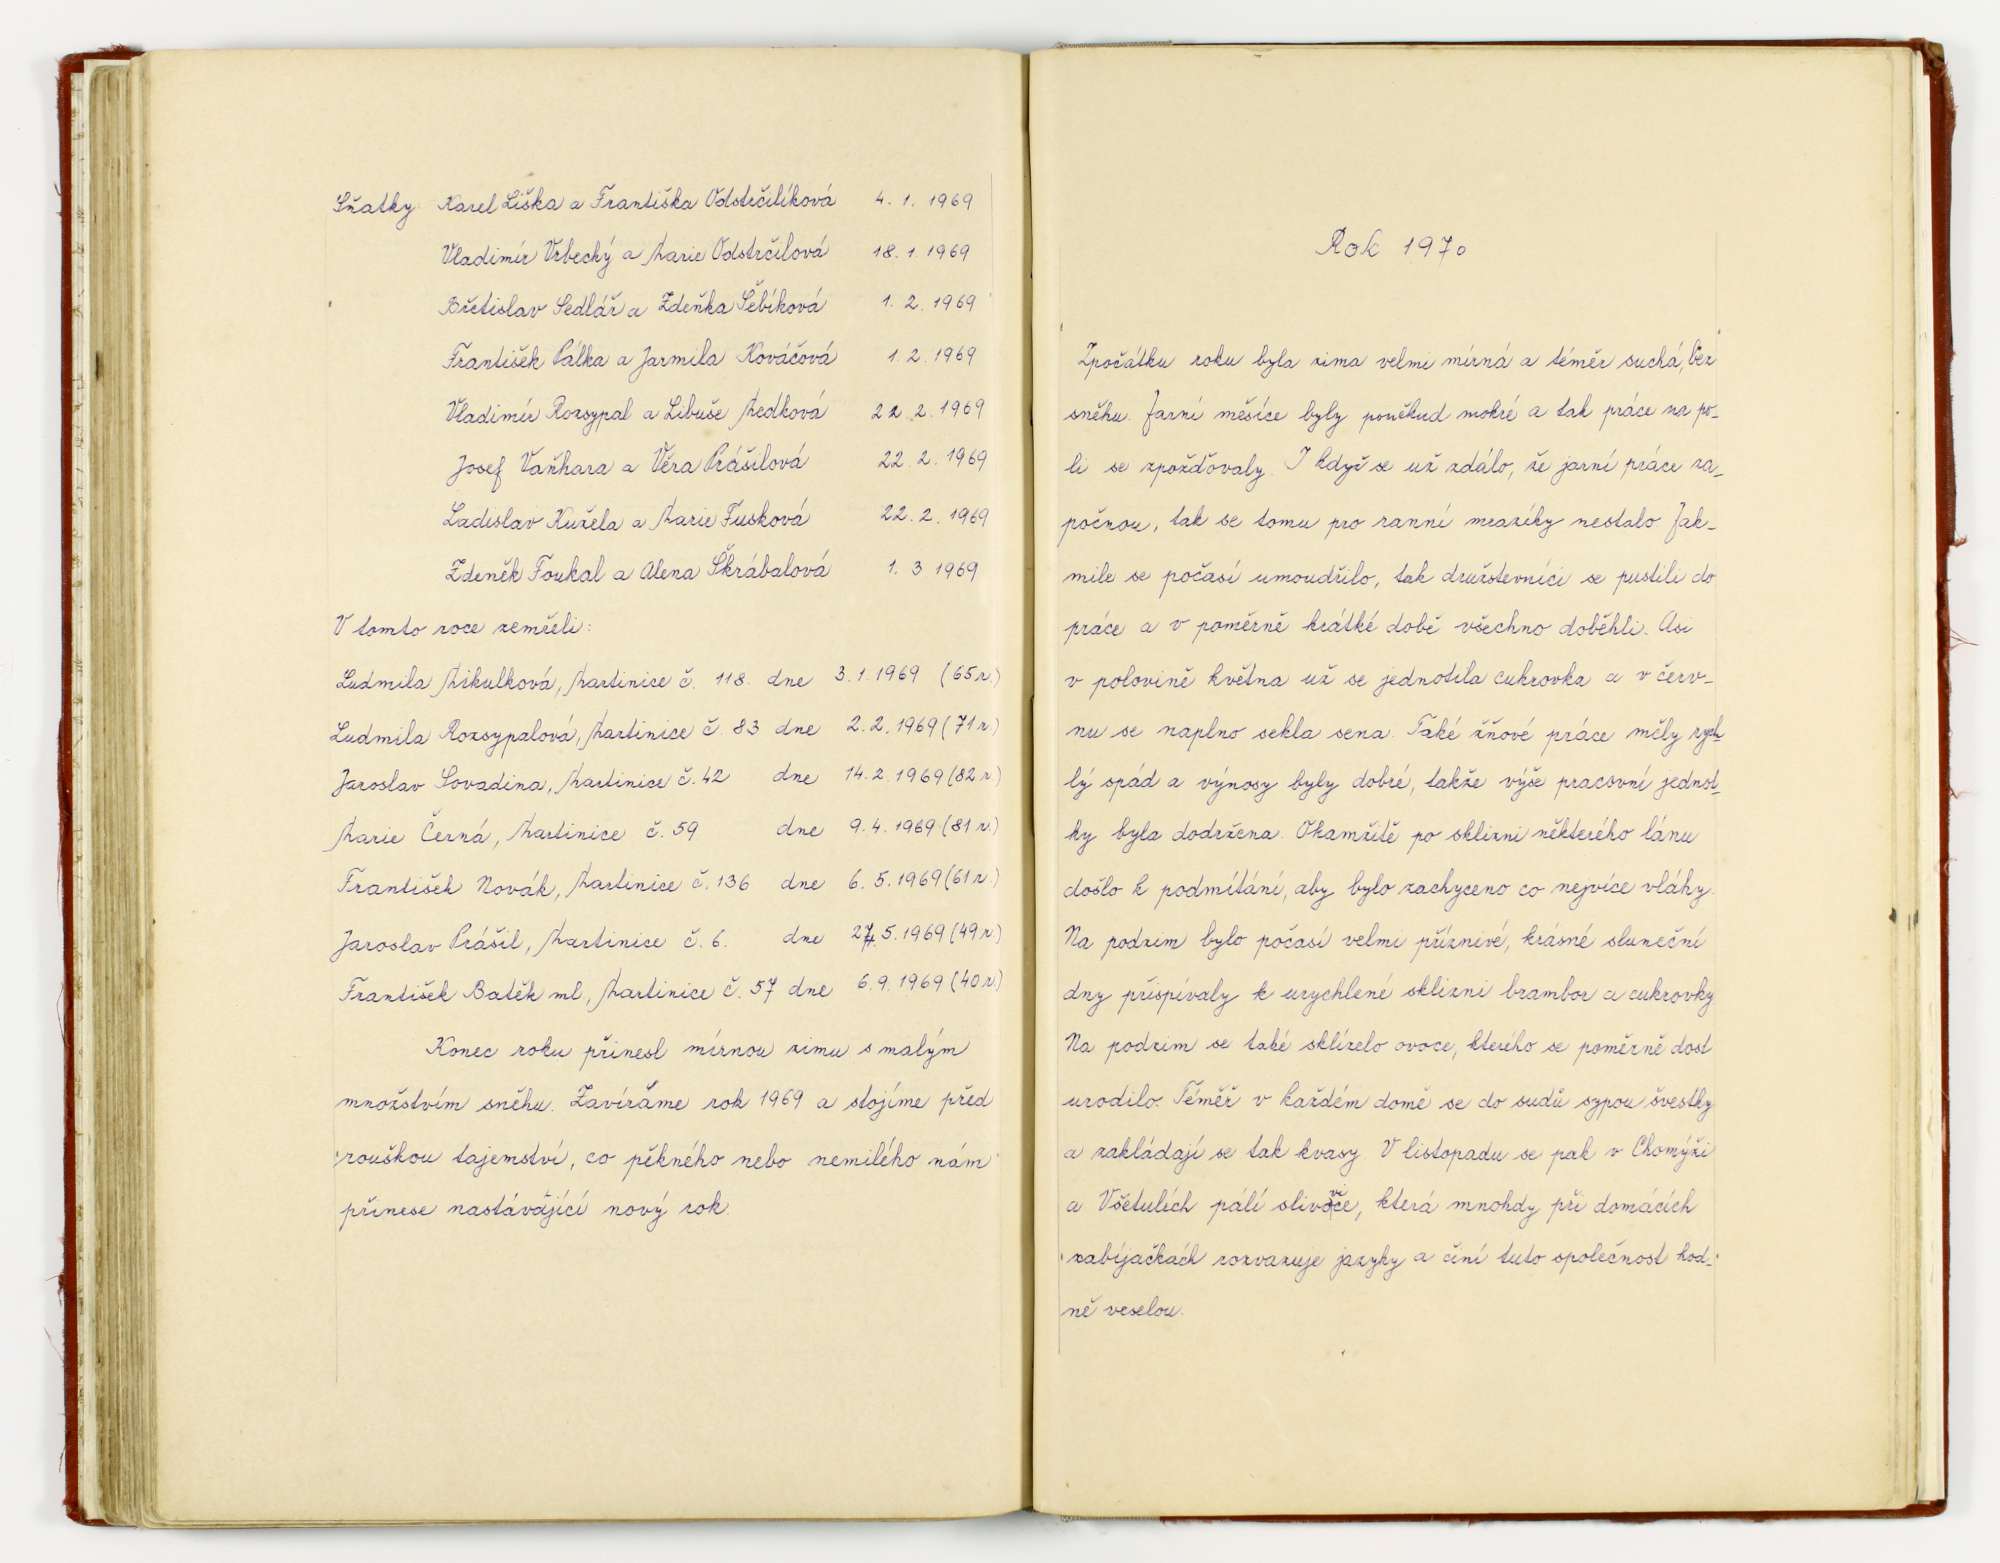 Sňatky Karel Liška a Františka Odstrčilíková 4. 1. 1969
Vladimír Vrbecký a Marie Odstrčilová 18. 1. 1969
Břetislav Sedlář a Zdeňka Šebíková 1. 2. 1969
František Pálka a Jarmila Kováčová 1. 2. 1969
Vladimír Rozsypal a Libuše Medková 22. 2. 1969
Josef Vaňhara a Věra Prášilová 22. 2. 1969
Ladislav Kužela a Marie Fusková 22. 2. 1969
Zdeněk Foukal a Alena Škrábalová 1. 3 1969
V tomto roce zemřeli:
Ludmila Mikulková, Martinice č. 118. dne 3. 1. 1969 (65 r.)
Ludmila Rozsypalová, Martinice č. 83 dne 2. 2. 1969 (71 r.)
Jaroslav Sovadina, Martinice č. 42 dne 14. 2. 1969 (82 r.)
Marie Černá, Martinice č. 59 dne 9. 4. 1969 (81 r.)
František Novák, Martinice č. 136 dne 6. 5. 1969 (61 r.)
Jaroslav Prášil, Martinice č. 6. dne 5. 1969 (49 r.)
František Batěk ml, Martinice č. 57 dne 6. 9. 1969 (40 r.)
Konec roku přinesl mírnou zimu s malým
množstvím sněhu. Zavíráme rok 1969 a stojíme před
rouškou tajemství, co pěkného nebo nemilého nám
přinese nastávající nový rok.
Rok 1970
Zpočátku roku byla zima velmi mírná a téměr suchá, bez
sněhu. Jarní měsíce byly poněkud mokré a tak práce na po-
li se zpožďovaly. I když se už zdálo, že jarní práce za-
počnou, tak se tomu pro ranní mrazíky nestalo Jak-
mile se počasí umoudřilo, tak družstevníci se pustili do
práce a v poměrně krátké době všechno doběhli. Asi
v polovině května už se jednotila cukrovka a v červ-
nu se naplno sekla sena. Také žňové práce měly rych-
lý spád a výnosy byly dobré, takže výše pracovní jednot-
ky byla dodržena. Okamžitě po sklizni některého lánu
došlo k podmítání, aby bylo zachyceno co nejvíce vláhy.
Na podzim bylo počasí velmi příznivé, krásné sluneční
dny přispívaly k urychlené sklizni brambor a cukrovky
Na podzim se také sklízelo ovoce, kterého se poměrně dost
urodilo. Téměř v každém domě se do sudů sypou švestky
a zakládají se tak kvasy. V listopadu se pak v Chomýži
a Všetulích pálí slivovice, která mnohdy při domácích
zabíjačkách rozvazuje jazyky a činí tuto společnost hod-
ně veselou.